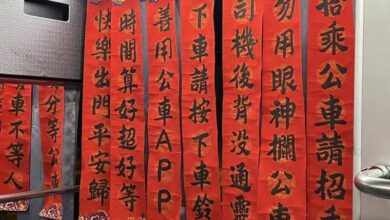 搭乘公車請招手
勿用眼神攔公車
司機後背沒通靈
下車請按下車鈴
善用公車APP
時間算好超好等
快樂出門平安歸
分等公
車不等人